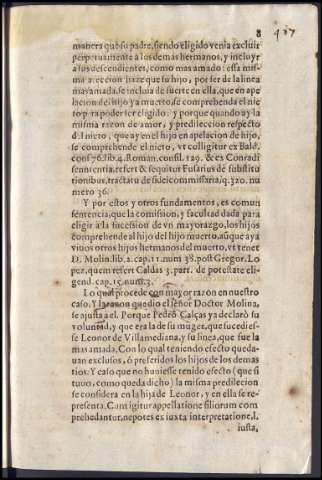 8
manera que su padre, siendo eligido venia excluir
perpetuamente a los demas hermanos, y incluyr
a sus descendientes, como mas amado: essa mis-
ma afeccion haze que su hijo, por ser de la linea
mas amada, se incluia de suerte en ella, que en ape
lacion del hijo ya muerto, se comprehenda el nie
to para poder ser eligido: y porque quando ay la
misma razon de amor, y predileccion respecto
del nieto, que ay en el hijo en apelacion de hijo,
se comprehende el nieto, vt colligitur ex Bald.
cons. 76. lib. 4. Roman. consil. 129. & ex Conradi
sententia, refert & sequitur Fusarius de substitu
tionibus, tractatu de fideicommissaria, q. 320. nu
mero 36.
Y por estos y otros fundamentos, es comun
sentencia, que la comission, y facultad dada para
eligir a la sucession de vn mayorazgo, los hijos
comprehende al hijo del hijo muerto, aũque aya
viuos otros hijos hermanos del muerto, vt tenet
D. Molin. lib. 2. cap. 11. num. 38. post Gregor. Lo
pez, quem refert Caldas 3. part. de potestate eli-
gend. cap. 15. num. 3.
Lo qual procede con mayor razon en nuestro
caso. Y la rason que dio el señor Doctor Molina,
se ajusta a el. Porque Pedro Calças ya declarò su
voluntad, y que era la de su muger, que sucedies-
se Leonor de Villamediana, y su linea, que fue la
mas amada. Con lo qual teniendo efecto queda-
uan exclusos, ò preferidos los hijos de los demas
tios. Y caso que no huuiesse tenido efecto (que si
tuuo, como queda dicho) la misma predileccion
se considera en la hija de Leonor, y en ella se re-
presenta. Cum igitur appellatione filiorum com
prehedantur, nepotes ex iuxta interpretatione, l.
iusta,